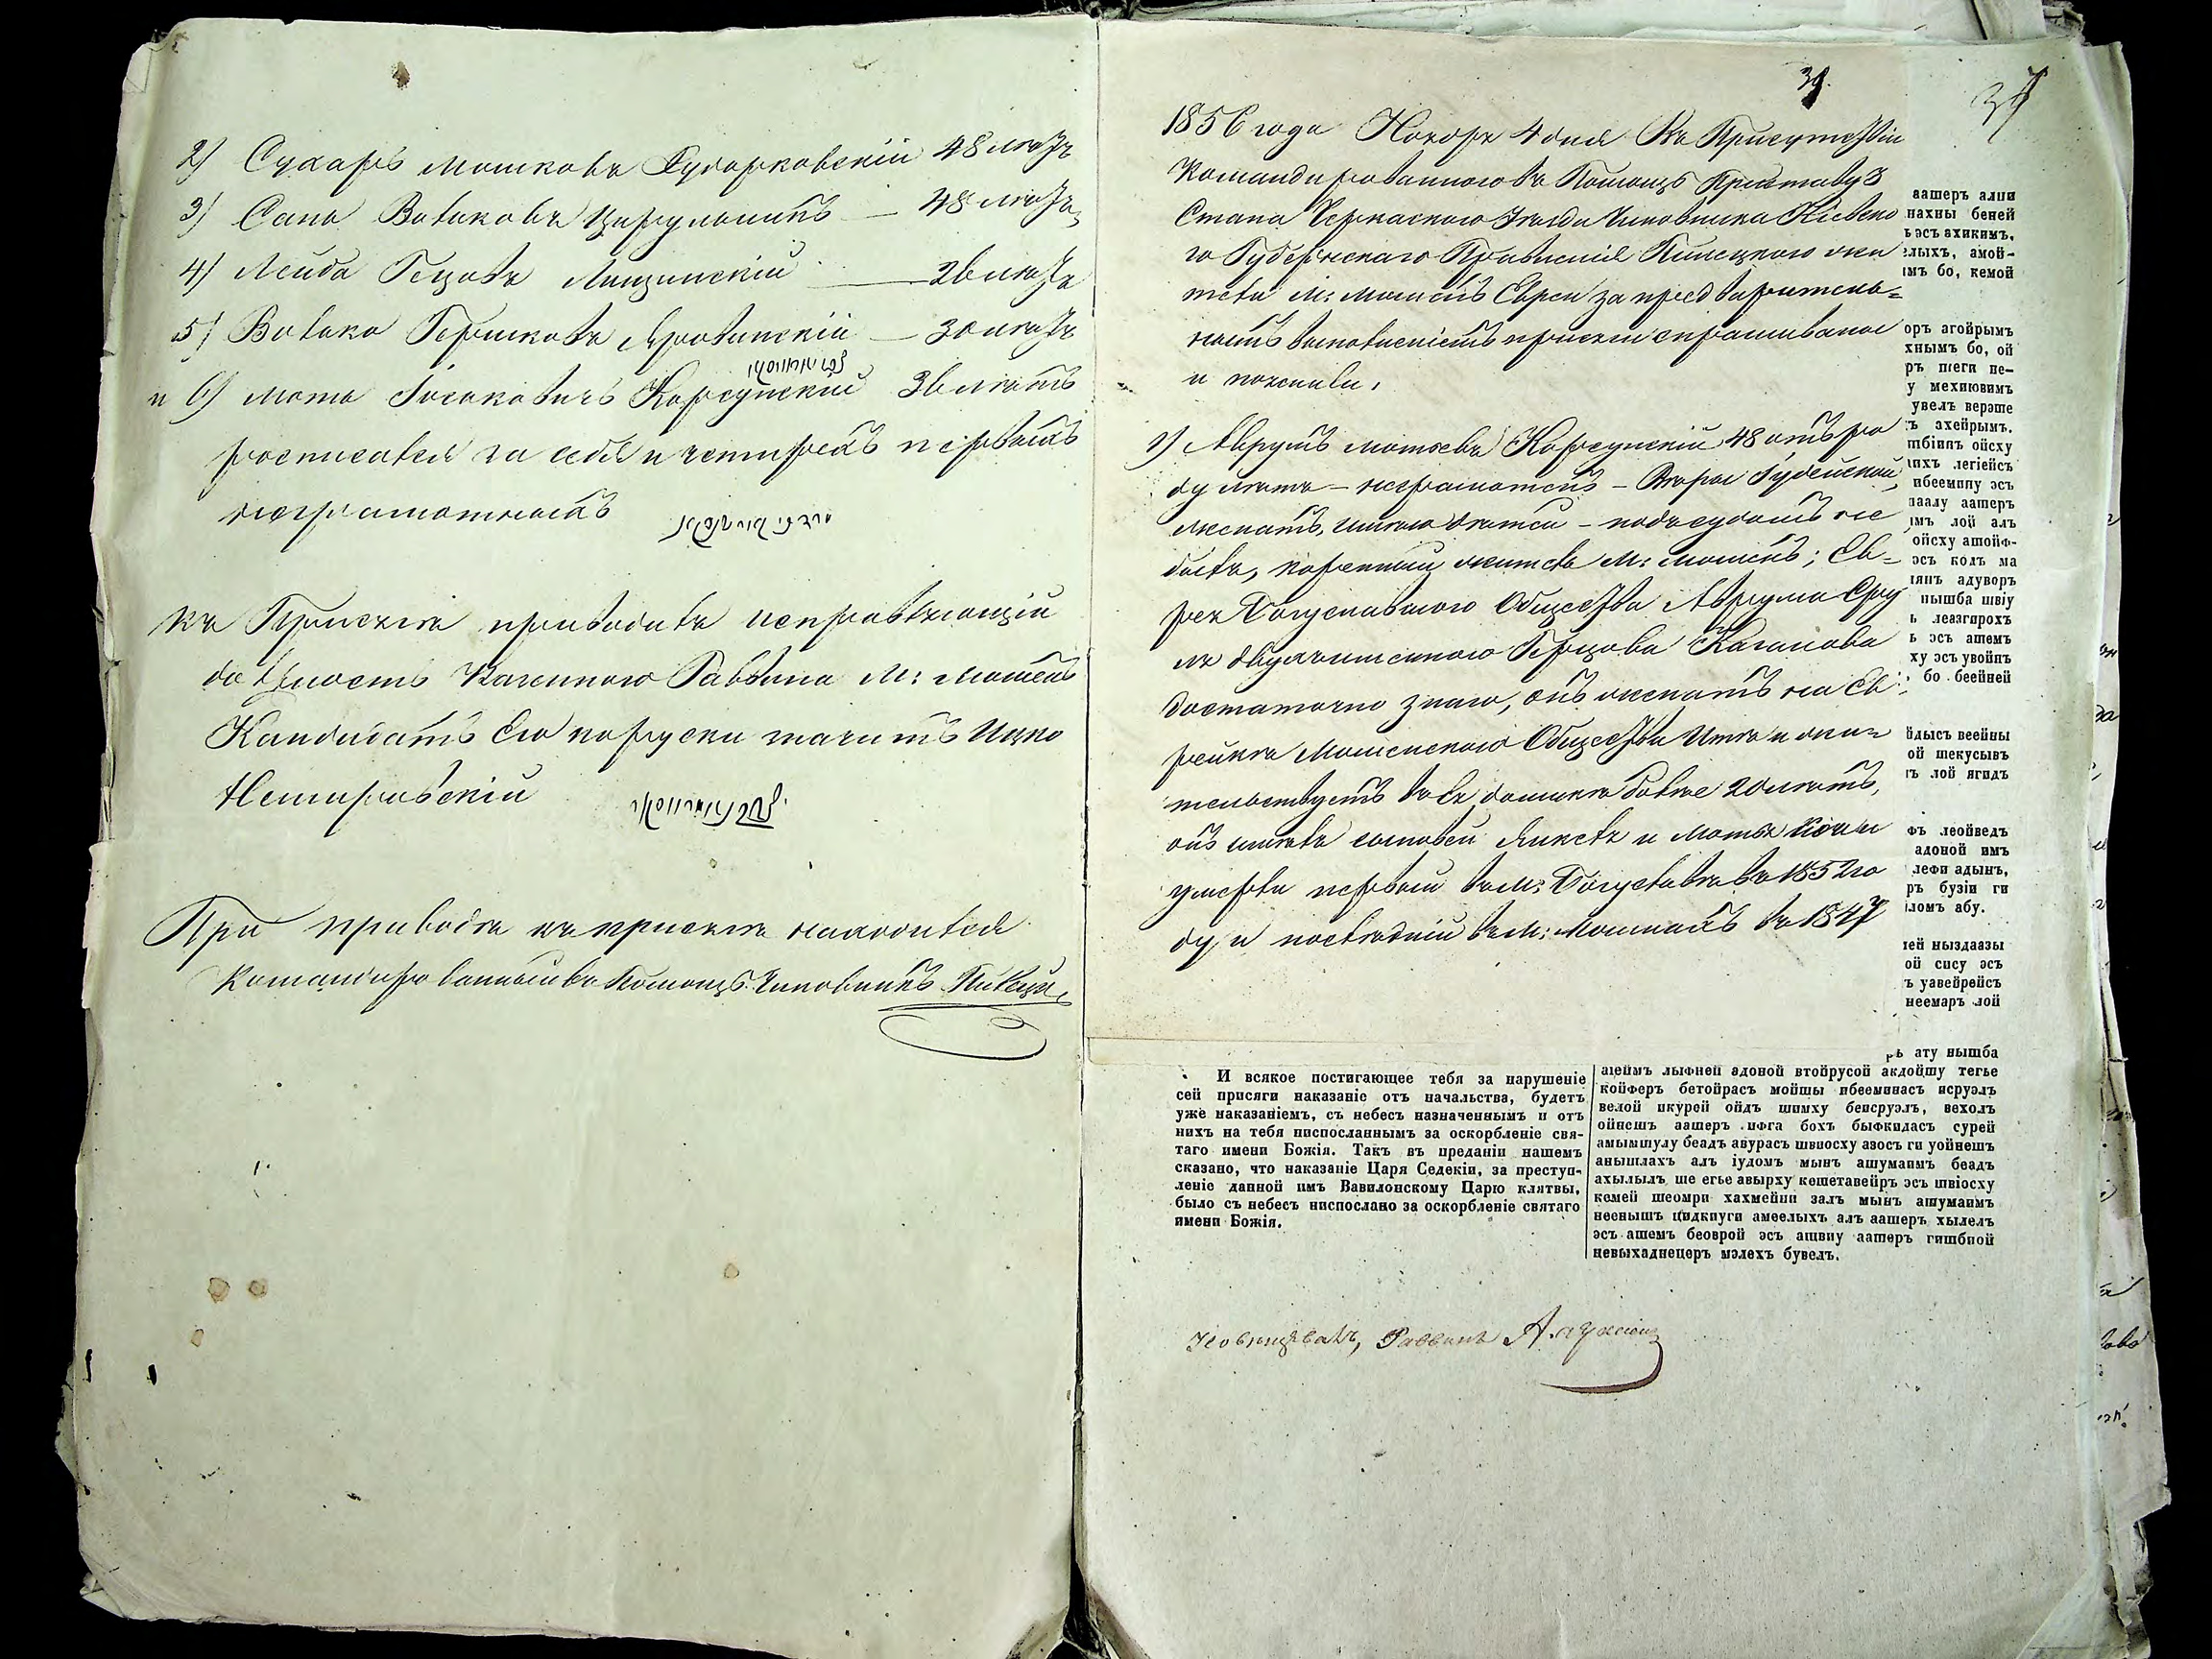 2) Сухаръ Мошковъ Сухарковскій 48 лѣтъ
3) Сапа Вольковъ Цирульникъ — 48 лѣтъ
4) Лейба Гецовъ Лищинскій — 36 лѣтъ
5) Волько Гершковъ Яровинскій — 30 лѣтъ
и 6) Мотя Іоськовичъ Корсунскій 36 лѣтъ
росписался за себя и четырехъ первыхъ
неграмотныхъ
Къ Присягѣ приводилъ исправляющій
должность Казеннаго Раввина М: Мошенъ
Кандидатъ Его поруски значитъ Ицко
Немировскій
При приводѣ къ присягѣ находился
Командированный въ Помощь Чиновникъ
39.
39
1856 года Ноября 4 дня Въ Присутствіи
Командированнаго въ Помощь Приставу 3
Стана Черкаскаго Уѣзда Чиновника Кіевска
го Губернскаго Правленія жи
тели М: Мошенъ Евреи за предварительно=
нымъ выполненіемъ присяги спрашиваны
и показали,
1) Аврумъ Мотьевъ Корсунскій 48 отъ ро
ду лѣтъ — неграмотенъ — Вѣры Іудейской,
женатъ, имѣю дѣтей — подъ судомъ не
былъ, коренный житель М: Мошенъ; Ев=
рея Богуславскаго Общества Аврума Сру
ля двухъименнаго Герцова Каганова
достаточно знаю, онъ женатъ на Ев:
рейкѣ Мошенскаго Общества Итѣ и жи=
тельствуетъ въ ея домикѣ болѣе 20 лѣтъ,
онъ имѣлъ сыновей Янкеля и Мотя кои и
умерли первый въ М: Богуславлѣ въ 1852 го
ду, и послѣдній въ М: Мошнахъ въ 1847
аашеръ алпи
нахны беней
ъ эсъ ахикимъ,
елыхъ, амой-
имъ бо, кемой
оръ агойрымъ
хнымъ бо, ой
ръ шеги не-
у мехиювимъ
увелъ верэше
ъ ахейрымъ.
тбіипъ ойсху
ихъ легіейсъ
ибееминну эсъ
лаалу аашеръ
имъ лой алъ
ойсху ашойф-
эсъ колъ ма
иянъ адуворъ
нышба швіу
ь леазгирохъ
ь эсъ ашемъ
ху эсъ увойпъ
бо беейней
йдысъ веейны
ой шекусывъ
ъ лой ягидъ
фъ леойведъ
адоной имъ
лефи адынъ,
ръ бузіи ги
ломъ абу.
ей ныздаазы
ой сису эсъ
ъ уавейрейсъ
неемаръ лой
ръ ату нышба
И всякое постигающее тебя за нарушеніе
сей присяги наказаніе отъ начальства, будетъ
уже наказаніемъ, съ небесъ назначеннымъ и отъ
нихъ на тебя ниспосланнымъ за оскорбленіе свя-
таго имени Божія. Такъ въ преданіи нашемъ
сказано, что наказаніе Царя Седекіи, за преступ-
леніе данной имъ Вавилонскому Царю клятвы,
было съ небесъ ниспослано за оскорбленіе святаго
имени Божія.
аіеймъ лыфней адоной втойрусой акдойшу тегье
койферъ бетойрасъ мойшы ибееминасъ исруэлъ
велой икурей ойдъ шимху беисруэлъ, вехолъ
ойнешъ аашеръ ифга бохъ быфкидасъ сурей
амымшулу беадъ авурасъ швиосху азосъ ги уойнешъ
анышлахъ алъ іудомъ мынъ ашумаимъ беадъ
ахылылъ ше егье авырху кешетавейръ эсъ швіосху
кемей шеомри хахмейни залъ мынъ ашумаимъ
неенышъ цидкпуги амеелыхъ алъ аашеръ хылелъ
эсъ ашемъ беоврой эсъ ашвиу аашеръ гишбиой
невыхаднецеръ мэлехъ бувелъ.
Раввинъ